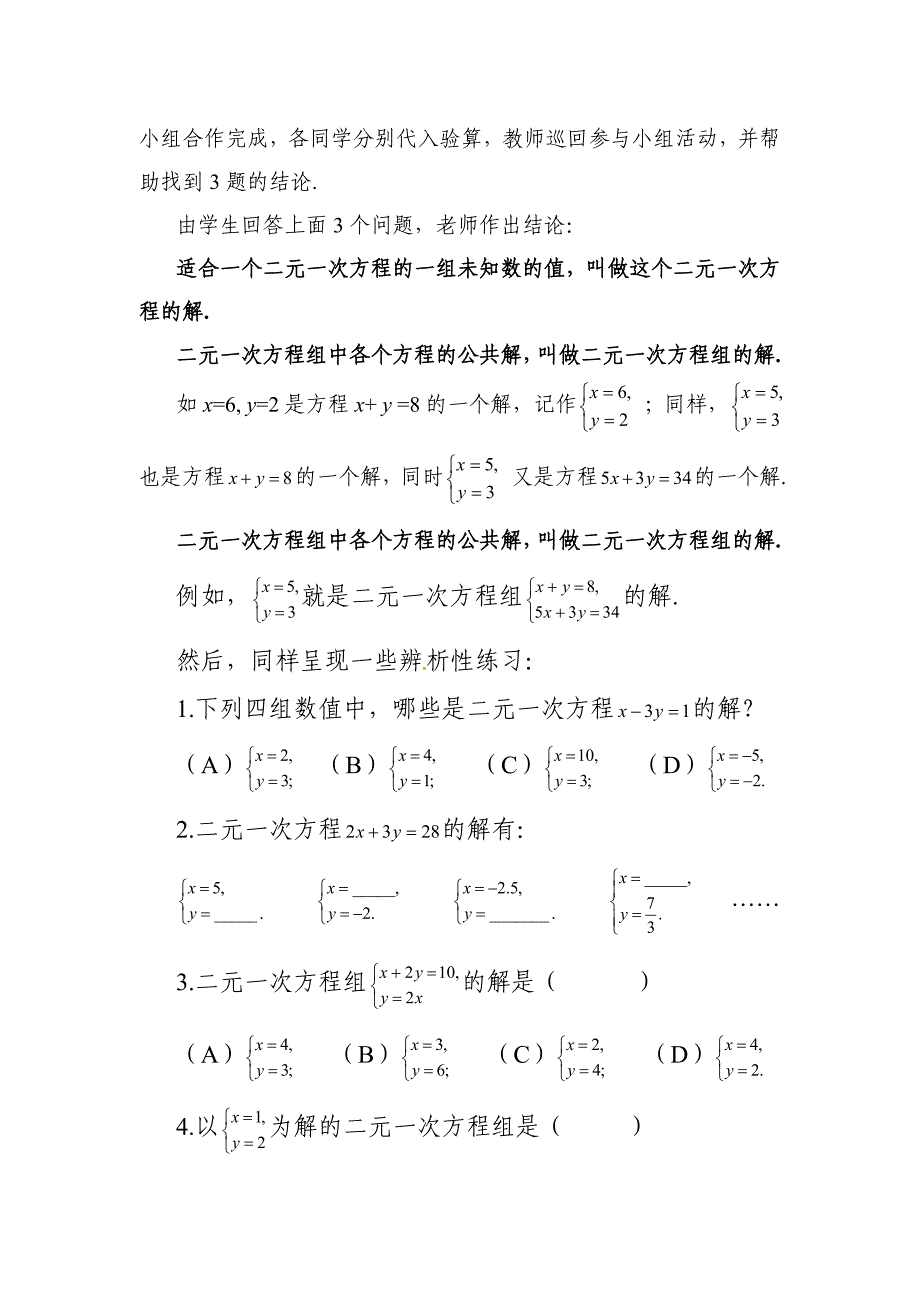 小组合作完成，各同学分别代入验算，教师巡回参与小组活动，并帮
助找到 3 题的结论.
由学生回答上面 3 个问题，老师作出结论：
适合一个二元一次方程的一组未知数的值，叫做这个二元一次方
程的解.
二元一次方程组中各个方程的公共解，叫做二元一次方程组的解.
如 x=6, y=2 是方程 x+ y =8 的一个解，记作{x=6, y=2 ；同样，{x=5, y=3
也是方程 x+y=8 的一个解，同时{x=5, y=3 又是方程 5x+3y=34 的一个解.
二元一次方程组中各个方程的公共解，叫做二元一次方程组的解.
例如，{x=5, y=3 就是二元一次方程组{x+y=8, 5x+3y=34 的解.
然后，同样呈现一些辨析性练习：
1.下列四组数值中，哪些是二元一次方程 x-3y=1 的解？
（A）{x=2, y=3; （B）{x=4, y=1; （C）{x=10, y=3; （D）{x=-5, y=-2.
2.二元一次方程 2x+3y=28 的解有：
{x=5, y=_____. {x=_____, y=-2. {x=-2.5, y=_______. {x=_____, y=7/3. ……
3.二元一次方程组{x+2y=10, y=2x 的解是（ ）
（A）{x=4, y=3; （B）{x=3, y=6; （C）{x=2, y=4; （D）{x=4, y=2.
4.以{x=1, y=2 为解的二元一次方程组是（ ）